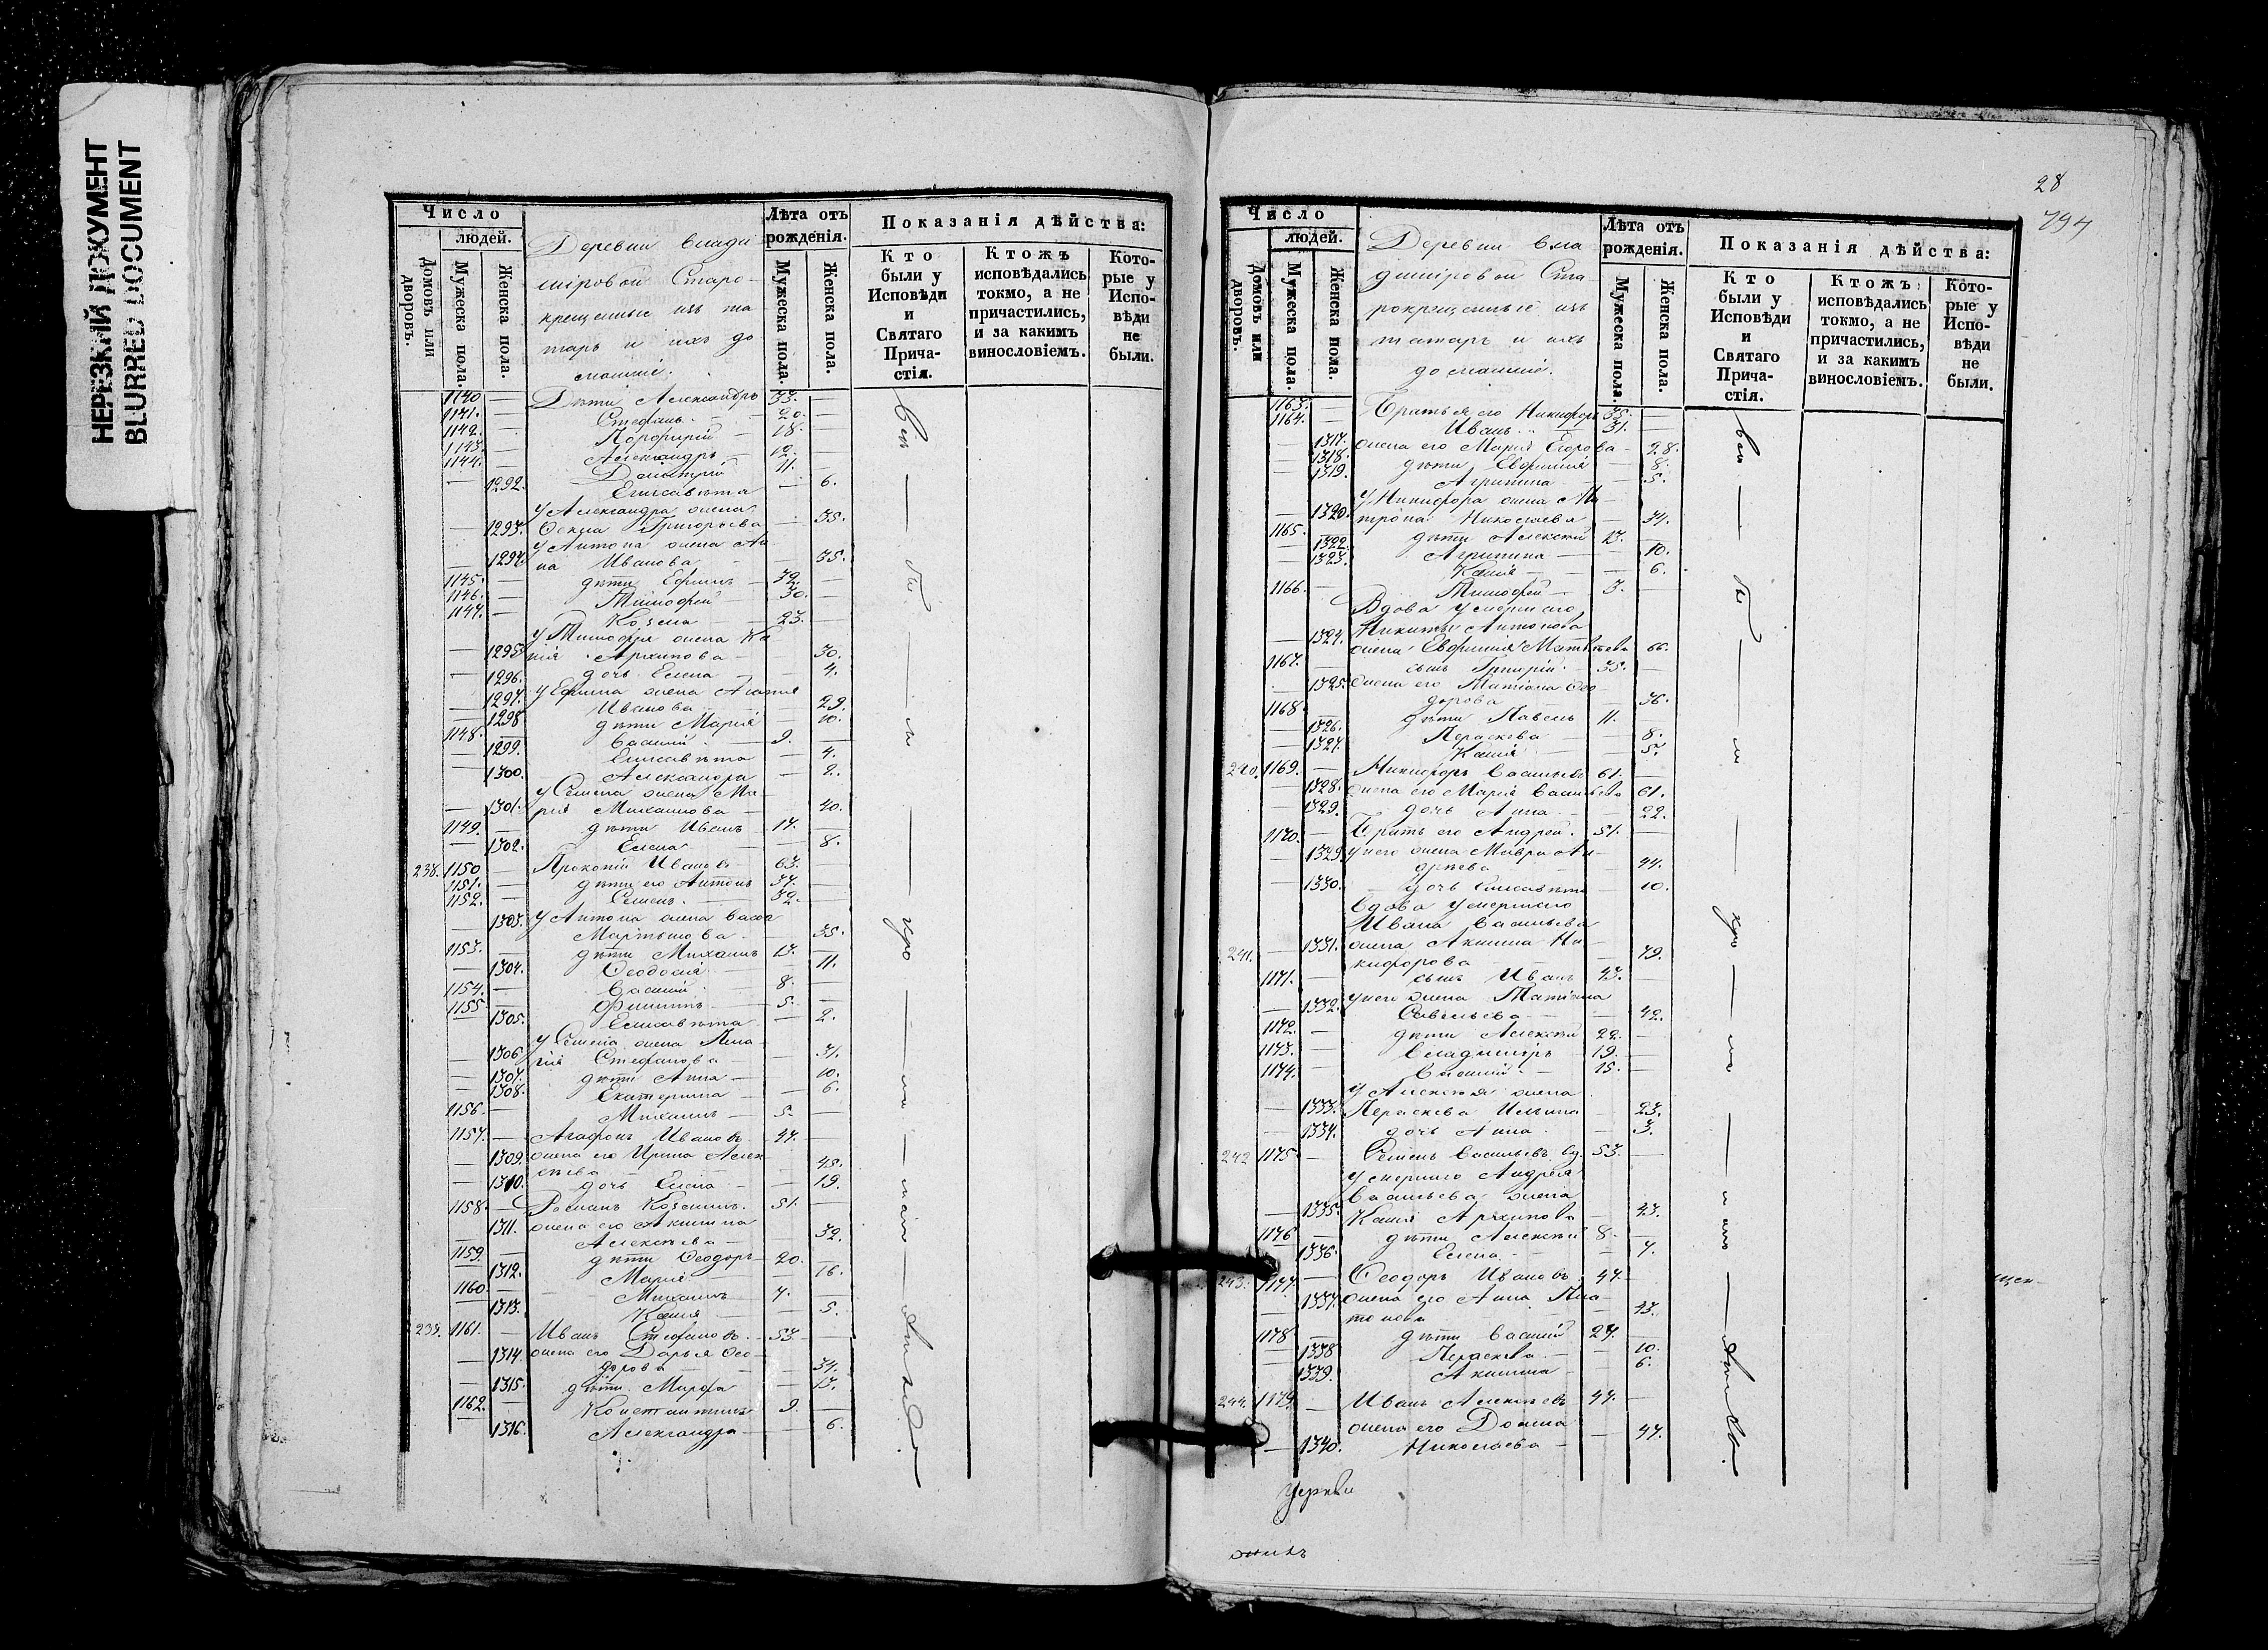 НЕРЕЗКИЙ ДОКУМЕНТ
BLURRED DOCUMENT
Число
людей.
Домовъ или дворовъ.
Мужеска пола.
Женска пола.
Деревни Влади
міровой Старо-
крещенные изъ та
таръ и ихъ до
машніе.
Лѣта отъ рожденія.
Мужеска пола.
Женска пола.
Показанія дѣйства:
Кто были у Исповѣди и Святаго Прича-стія.
Ктожъ исповѣдались токмо, а не причастились, и за какимъ винословіемъ.
Кото-рые у Испо-вѣди не были.
1140 — Дѣти Александръ 33. —
1141. — Стефанъ — 20. —
1142. — Порфирій — 18. —
1143. — Александръ — 12. —
1144. — Дмитрій 11. —
— 1292. Елисавѣта — 6.
у Александра жена
— 1293. Ѳекла Григорьева — 35.
у Антона жена Ан
— 1294 на Иванова — 35.
1145. — дѣти Ефимъ — 32. —
1146. — Тимофей — 30. —
1147. — Козма — 23. —
у Тимофея жена Ка
— 1295 нія Архипова — 30.
— 1296. дочь Елена — 4.
у Ефима жена Агафія
— 1297. Иванова — 29.
— 1298 дѣти Марія — 10.
1148. — Василій — 9. —
— 1299. Елисавѣта — 4.
— 1300. Александра — 2.
у Семена жена Ма-
— 1301. рія Михаилова — 40.
1149. — дѣти Иванъ — 14. —
— 1302. Елена — 8.
238. 1150 — Прокопій Ивановъ 63. —
1151. — дѣти его Антонъ 37. —
1152. — Семенъ. — 32. —
— 1303. у Антона жена Васса
Мартынова — 35.
1153. — дѣти Михаилъ 13. —
— 1304. Ѳеодосія — 11.
1154. — Василій — 8. —
1155 — Филиппъ — 5. —
— 1305. Елисавѣта — 2.
у Семена жена Пела-
— 1306 гія Стефанова — 31.
— 1307. дѣти Анна — 10.
— 1308. Екатерина — 6.
1156. — Михаилъ — 5. —
1157. — Агафонъ Ивановъ 47. —
— 1309. жена его Ирина Алек-
сѣева — 45.
— 1310. дочь Елена — 19.
1158. — Романъ Козминъ. 51. —
— 1311. жена его Акилина
Алексѣева — 32.
1159. — дѣти Ѳеодоръ — 20. —
— 1312. Марія — 16.
1160 — Михаилъ 7. —
— 1313. Ксенія — 5.
239. 1161. — Иванъ Стефановъ — 53. —
— 1314. жена его Дарья Ѳео-
дорова — 34.
— 1315. дѣти Марфа — 13.
1162. — Константинъ 9. —
— 1316. Александра — 6.
28
794
Число
людей.
Домовъ или дворовъ.
Мужеска пола.
Женска пола.
Деревни Вла
диміровой Ста-
рокрещенные изъ
татаръ и ихъ
домашніе.
Лѣта отъ рожденія.
Мужеска пола.
Женска пола.
Показанія дѣйства:
Кто были у Исповѣди и Святаго Прича-стія.
Ктожъ исповѣдались токмо, а не причастились, и за какимъ винословіемъ.
Кото-рые у Испо-вѣди не были.
1163. — Братья его Никифоръ 35. —
1164. — Иванъ 31. —
— 1317. жена его Марія Егорова — 28.
— 1318. дѣти Евфимія — 8.
— 1319. Агрипина — 5.
у Никифора жена Ма
— 1320. трона Николаева — 34.
1165. — дѣти Алексѣй 13. —
— 1322. Агрипина — 10.
— 1323. Ксенія — 6.
1166. — Тимофей — 3. —
Вдова умершаго
Никиты Антонова
— 1324. жена Евфимія Матвѣева 66.
1167. — сынъ Григорій 35. —
— 1325. жена его Татіана Ѳео-
дорова — 36.
1168. — дѣти Павелъ 11. —
— 1326. Параскева — 8.
— 1327. Ксенія — 5.
240. 1169. — Никифоръ Васильевъ 61. —
— 1328. жена его Марія Васильева 61.
— 1329. дочь Анна — 22.
1170. — Братъ его Андрей. 51. —
— 1329. у него жена Мавра Ан-
дреева — 44.
— 1330. дочь Елисавѣта — 10.
Вдова умершаго
Ивана Васильева
241. — 1331. жена Акилина Ни-
кифорова — 79.
1171. — сынъ Иванъ 43. —
— 1332. у него жена Татіана
Савельева — 42.
1172. — дѣти Алексѣй 22. —
1173. — Владиміръ 19. —
1174. — Василій — 15. —
у Алексѣя жена
— 1333. Параскева Ильина — 23.
— 1334. дочь Анна — 3.
242 1175 — Семенъ Васильевъ 53. —
умершаго Андрея
Васильева жена
— 1335. Ксенія Архипова — 43.
1176 — дѣти Алексѣй 8. —
— 1336. Елена — 4.
243. 1177. — Ѳеодоръ Ивановъ 47. —
— 1337. жена его Анна Пла
тонова — 43.
1178 — дѣти Василій 27. —
— 1338 Параскева — 10.
— 1339. Акилина — 6.
244. 1179. — Иванъ Алексѣевъ 47. —
жена его Домна
— 1340. Николаева — 47.
Церкви